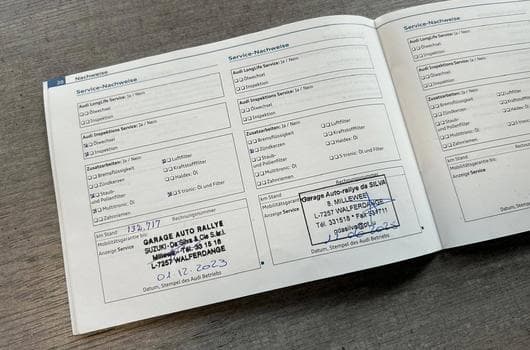 20
Nachweise
Service-Nachweise
Audi LongLife Service: Ja / Nein
Ölwechsel
Inspektion
Audi Inspektions Service: Ja / Nein
Ölwechsel
Inspektion
Zusatzarbeiten: Ja / Nein
Bremsflüssigkeit
Zündkerzen
Staub-
und Pollenfilter
Multitronic: Öl
Zahnriemen
Luftfilter
Kraftstofffilter
Haldex: Öl
S tronic: Öl und Filter
km Stand
132,717
Rechnungsnummer
Mobilitätsgarantie bis:
Anzeige Service
GARAGE AUTO RALLYE
SUZUKI- Da Silva & Cie S.à r.l.
Tél. 33 15 18
L-7257 WALFERDANGE
01.12.2023
Datum, Stempel des Audi Betriebs
Service-Nachweise
Audi LongLife Service: Ja / Nein
Ölwechsel
Inspektion
Audi Inspektions Service: Ja / Nein
Ölwechsel
Inspektion
Zusatzarbeiten: Ja / Nein
Bremsflüssigkeit
Zündkerzen
Staub-
und Pollenfilter
Multitronic: Öl
Zahnriemen
Luftfilter
Kraftstofffilter
Haldex: Öl
S tronic: Öl und Filter
km Stand
Mobilitätsgarantie
Anzeige Service
Garage Auto-rallye da SILVA
8, MILLEWEE
L-7257 WALFERDANGE
Tél. 331518 • Fax 331711
gdasilva@pt.lu
Datum, Stempel des Audi Betriebs
Service-Nachweise
Audi LongLife Service: Ja / Nein
Ölwechsel
Inspektion
Audi Inspektions Service: Ja / Nein
Ölwechsel
Inspektion
Zusatzarbeiten: Ja / Nein
Bremsflüssigkeit
Zündkerzen
Staub-
und Pollenfilter
Multitronic: Öl
Zahnriemen
km Stand
Mobilitätsgarantie bis:
Anzeige Service